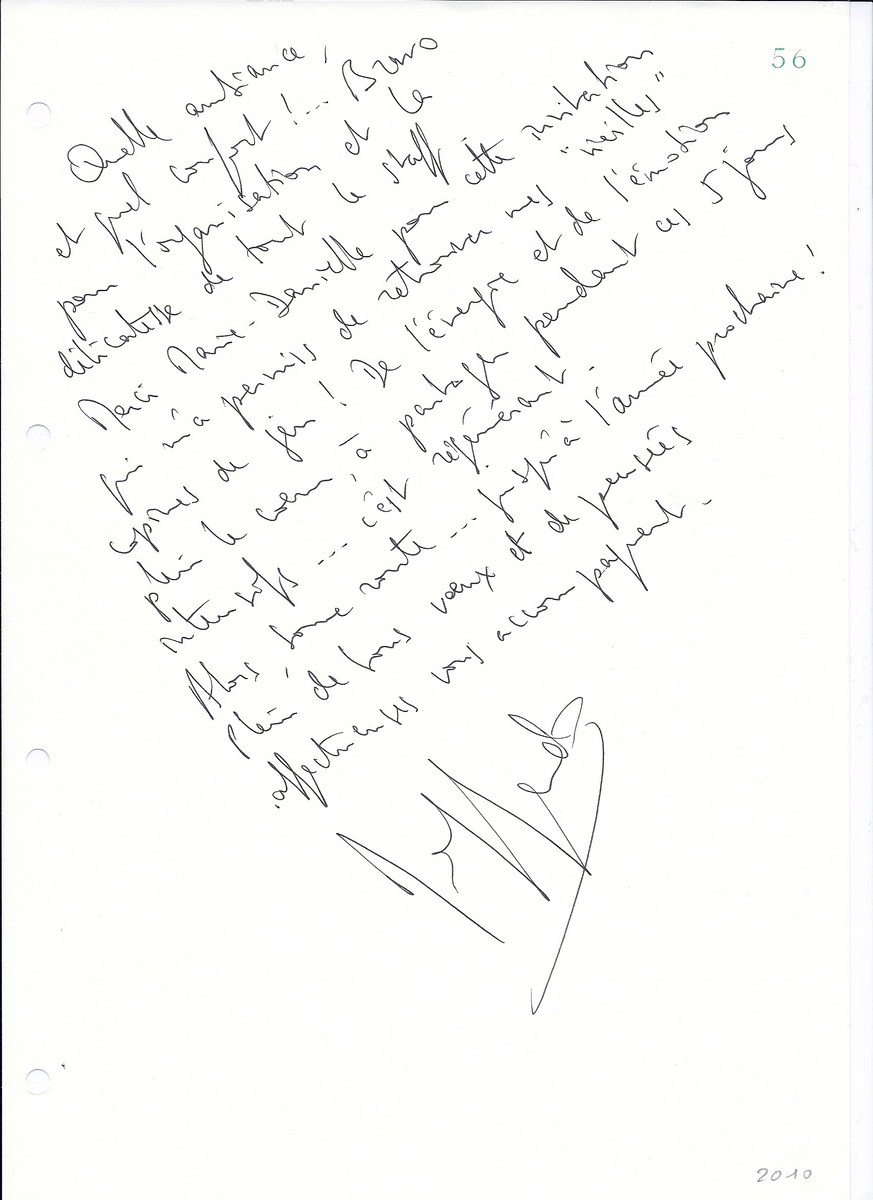 56
Quelle ambiance,
et quel confort !... Bravo
pour l'organisation et la
délicatesse de tout le staff.
Merci Marie-Danielle pour cette invitation
qui m'a permis de retrouver mes "vieilles"
copines de jeu ! De l'énergie et de l'émotion
plein le coeur à partager pendant ces 5 jours
intensifs... c'est régénérant.
Alors bonne route... jusqu'à l'année prochaine !
Plein de bons voeux et de pensées
affectueuses vous accompagnent.
2010